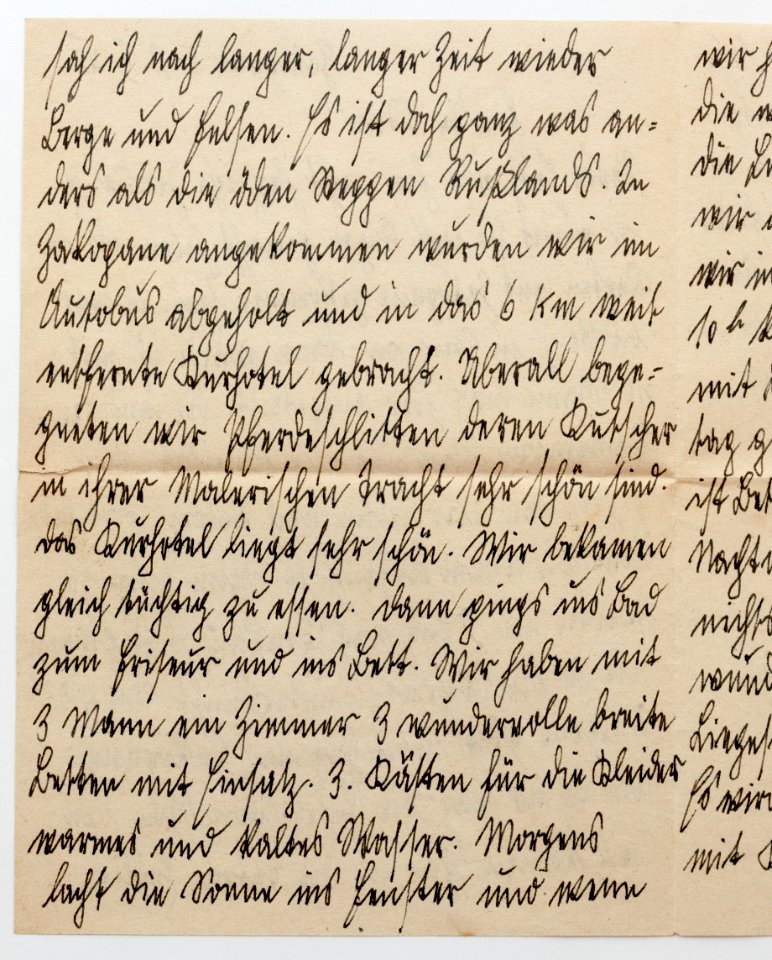 sah ich nach langer, langer Zeit wieder
Berge und Felsen. Es ist doch ganz was an=
ders als die öden Steppen Rußlands. In
Zakopane angekommen wurden wir im
Autobus abgeholt und in das 6 km weit
entfernte Kurhotel gebracht. Überall bege=
gneten wir Pferdeschlitten deren Kutscher
in ihrer Malerischen Tracht sehr schön sind.
das Kurhotel liegt sehr schön. Wir bekamen
gleich tüchtig zu essen. dann gings ins Bad
zum Friseur und ins Bett. Wir haben mit
3 Mann ein Zimmer 3 wundervolle breite
Betten mit Einsatz. 3. Kästen für die Kleider
warmes und kaltes Wasser. Morgens
lacht die Sonne ins Fenster und wenn
wir
die
die
wir
wir
10 h
mit
tag
ist
nichts
Es
mit